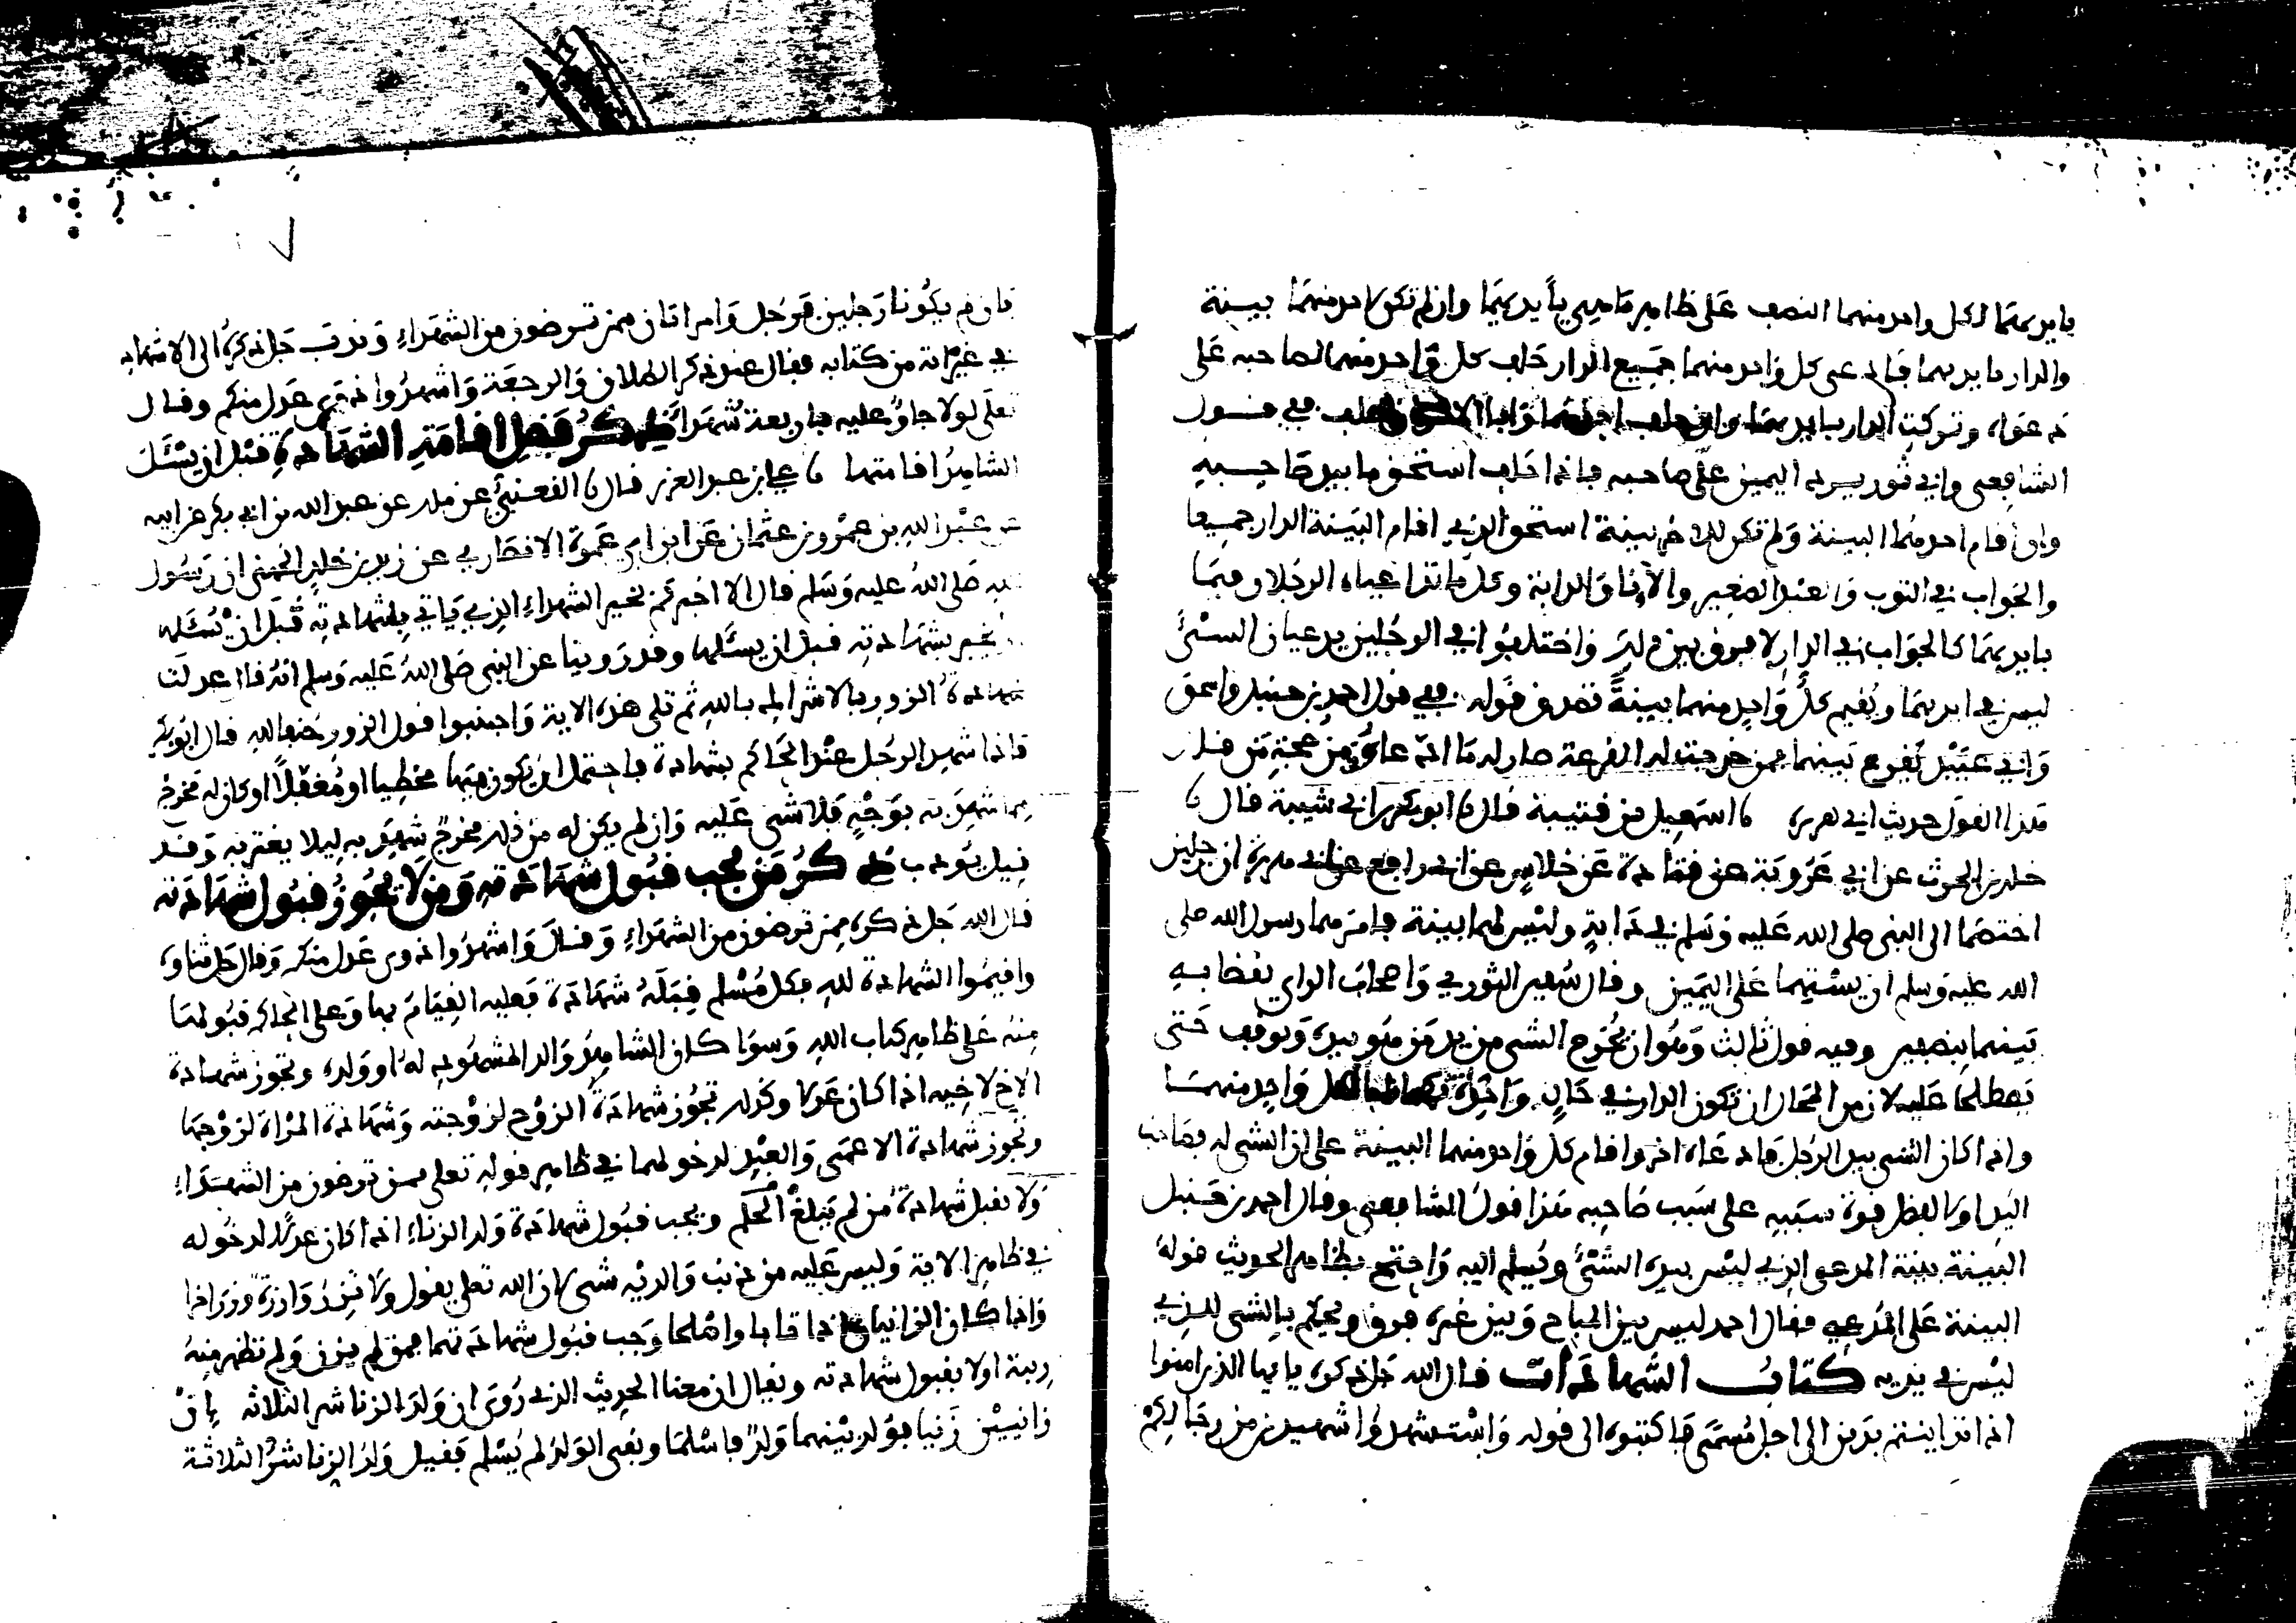 بايديهما لكل واحد منهما النصف على ظاهر ما هي بأيديهما وان لم تكن لاحد منهما بينة
والدار بايديهما فادعى كل واحد منهما جميع الدار حلف كل واحد منهما لصاحبه على
دعواه وتركت الدار بايديهما وان حلف احدهما وابا الاخر ان يحلف ففي قول
الشافعي وابي ثور يرد اليمين على صاحبه فاذا حلف استحق ما بيد صاحبه
وان اقام احدهما البينة ولم تكن للاخر بينة استحق الذي اقام البينة الدار جميعا
والجواب في الثوب والعبد الصغير والاناء والدابة وكل ما تداعياه الرجلان وهما
بايديهما كالجواب في الدار لا فرق بين ذلك واختلفوا في الرجلين يدعيان الشيء
ليس في ايديهما ويقيم كل واحد منهما بينة تصدق قوله ففي قول احمد بن حنبل واسحق
وابي عبيد يقرع بينهما فمن خرجت له القرعة صار له ما ادعاه ومن حجة من قال
هذا القول حديث ابي هريرة نا اسمعيل بن قتيبة قال نا ابو بكر بن ابي شيبة قال نا
خلد بن الحرث عن ابي عروبة عن قتادة عن خلاس عن ابي رافع عن ابي هريرة ان رجلين
اختصما الى النبي صلى الله عليه وسلم في دابة وليس لهما بينة فامرهما رسول الله صلى
الله عليه وسلم ان يستهما على اليمين وقال سفين الثوري واصحاب الراي يقضا به
بينهما بنصفين وفيه قول ثالث وهو ان يخرج الشي من يد من هو بيده ويوقف حتى
يصطلحا عليه لان من المحال ان تكون الدار في حال واحدة لكل واحد منهما
واذا كان الشي بيد الرجل فادعاه اخر واقام كل واحد منهما البينة على ان الشي له فصاحب
اليد اولا لفضل قوة سببه على سبب صاحبه هذا قول الشافعي وقال احمد بن حنبل
البينة بينة المدعي الذي ليس بيده الشيء ويسلم اليه واحتج بظاهر الحديث قوله
البينة على المدعي فقال احمد ليس بين المباح وبين غيره فرق ويحكم بالشي للذي
ليس في يديه كتاب الشهادات قال الله جل ذكره يا يها الذين امنوا
اذا تداينتم بدين الى اجل مسمى فاكتبوه الى قوله واستشهدوا شهيدين من رجالكم
فان لم يكونا رجلين فرجل وامراتان ممن ترضون من الشهداء وندب جل ذكره الى الاشهاد
في غير اية من كتابه فقال عند ذكر الطلاق والرجعة واشهدوا ذوي عدل منكم وقال
تعلى لولا جاو عليه باربعة شهداء ذكر فضل اقامة الشهادة قبل ان يسئل
الشاهد اقامتها نا علي بن عبد العزيز قال نا القعنبي عن ملك عن عبد الله بن ابي بكر عن ابيه
عن عبد الله بن عمرو بن عثمان عن ابن ابي عمرة الانصاري عن زيد بن خلد الجهني ان رسول
الله صلى الله عليه وسلم قال الا اخبركم بخير الشهداء الذي ياتي بشهادته قبل ان يسئلها
او يخبر بشهادته قبل ان يسئلها وقد روينا عن النبي صلى الله عليه وسلم انه قال عدلت
شهادة الزور بالاشراك بالله ثم تلى هذه الاية واجتنبوا قول الزور حنفا لله قال ابو بكر
فاذا شهد الرجل عند الحاكم بشهادة فاحتمل ان يكون فيها مخطيا او مغفلا او كان له مخرج
مما شهد به بوجه فلا شي عليه وان لم يكن له من ذلك مخرج شهر به ليلا يغتر به وقد
قيل يؤدب ذكر من يجب قبول شهادته ومن لا يجوز قبول شهادته
قال الله جل ذكره ممن ترضون من الشهداء وقال واشهدوا ذوي عدل منكم وقال جل ثناؤه
واقيموا الشهادة لله فكل مسلم قبله شهادة فعليه القيام بها وعلى الحاكم قبولها
منه على ظاهر كتاب الله وسوا كان الشاهد والد المشهود له او ولده وتجوز شهادة
الاخ لاخيه اذا كان عدلا وكذلك تجوز شهادة الزوج لزوجته وشهادة المراة لزوجها
وتجوز شهادة الاعمى والعبد لدخولهما في ظاهر قوله تعلى ممن ترضون من الشهداء
ولا يقبل شهادة من لم يبلغ الحلم ويجب قبول شهادة ولد الزناء اذا كان عدلا لدخوله
في ظاهر الاية وليس عليه من ذنب والديه شي لان الله تعلى يقول ولا تزر وازرة وزر اخرا
واذا كان الزانيان اذا تابا واصلحا وجب قبول شهادتهما فمن لم يزن ولم تظهر منه
ريبة اولا بقبول شهادته ويقال ان معنا الحديث الذي روى ان ولد الزنا شر الثلاثة بان
زانيين زنيا فولد بينهما ولد فاسلما وبقى الولد لم يسلم فقيل ولد الزنا شر الثلاثة